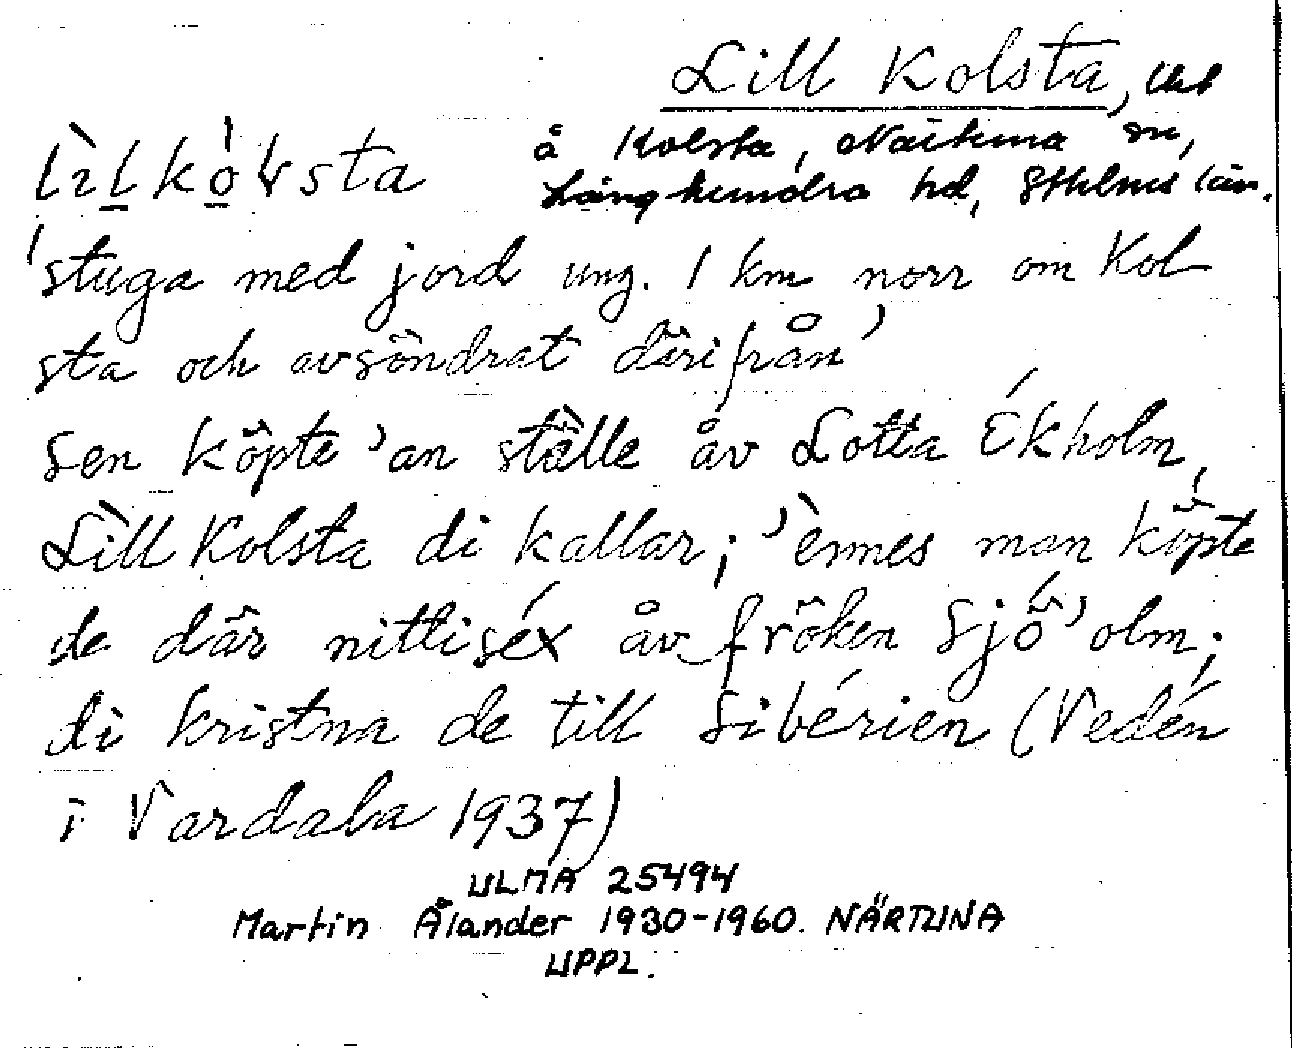 Lill Kolsta,
lìlkólsta
å Kolsta, Närtuna sn,
Långhundra hd, Sthlms län.
'stuga med jord ung. 1 km norr om Kol
sta och avsöndrat därifrån'
Sen köpte 'an ställe åv Lotta Ékholm,
Lìll Kolsta di kallar; 'ènnes man köpte
de där nittiséx åv fröken Sjö'olm;
di kristna de till Sibérien (Vedén
i Vardala 1937)
ULMA 25494
Martin Ålander 1930-1960. NÄRTUNA
UPPL.